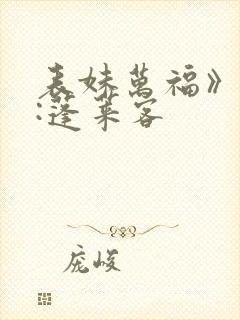 表妹萬福》
:蓬萊客
庞峻